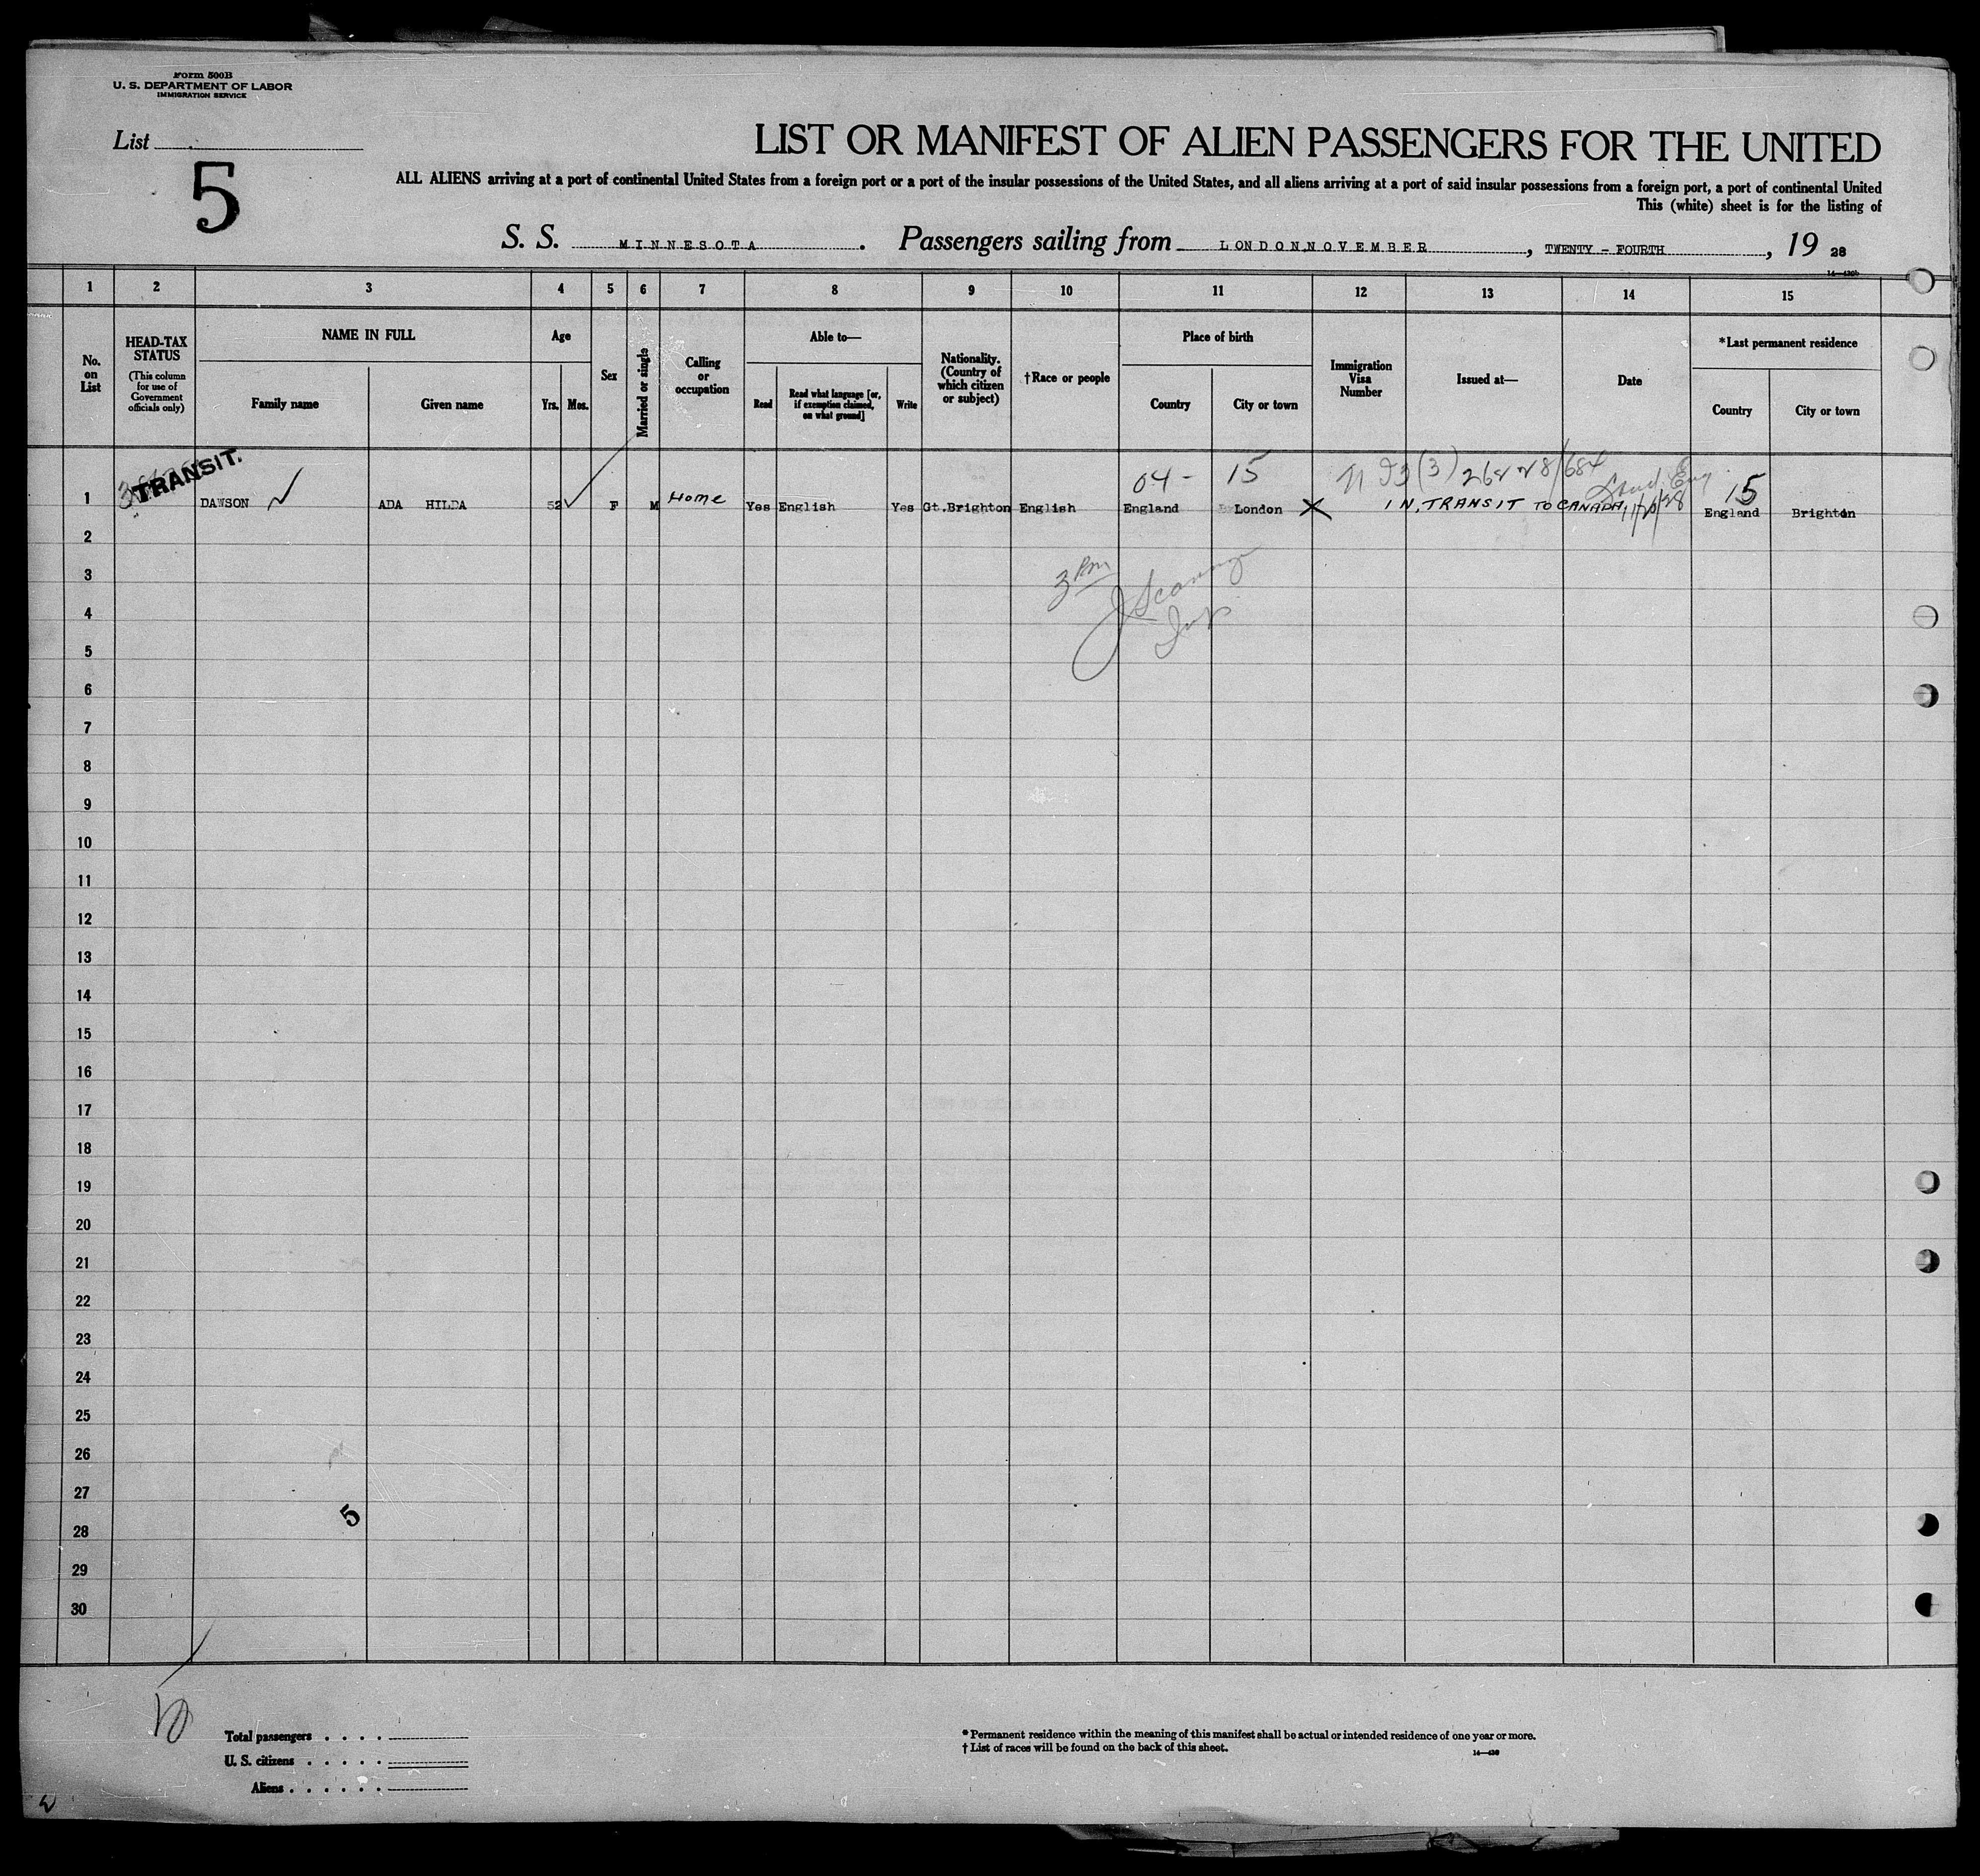 Form 500B
U. S. DEPARTMENT OF LABOR
IMMIGRATION SERVICE
List
5
LIST OR MANIFEST OF ALIEN PASSENGERS FOR THE UNITED
ALL ALIENS arriving at a port of continental United States from a foreign port or a port of the insular possessions of the United States, and all aliens arriving at a port of said insular possessions from a foreign port, a port of continental United
This (white) sheet is for the listing of
S. S. MINNESOTA. Passengers sailing from LONDON, NOVEMBER, TWENTY - FOURTH, 19 28
1 2 3 4 5 6 7 8 9 10 11 12 13 14 15
No. on List
HEAD-TAX STATUS
(This column for use of Government officials only)
NAME IN FULL
Family name Given name
Age
Yrs. Mos.
Sex
Married or single
Calling or occupation
Able to—
Read
Read what language [or, if exemption claimed, on what ground]
Write
Nationality. (Country of which citizen or subject)
†Race or people
Place of birth
Country City or town
Immigration Visa Number
Issued at—
Date
*Last permanent residence
Country City or town
TRANSIT.
04 - 15 (3) 15
1 DAWSON ADA HILDA 52 F M Home Yes English Yes Gt.Brighton English England London X IN TRANSIT TO CANADA England Brighton
2
3 3 Pm
4
5
6
7
8
9
10
11
12
13
14
15
16
17
18
19
20
21
22
23
24
25
26
27
5
28
29
30
Total passengers . . . .
U. S. citizens . . . . .
Aliens . . . . . .
* Permanent residence within the meaning of this manifest shall be actual or intended residence of one year or more.
† List of races will be found on the back of this sheet.